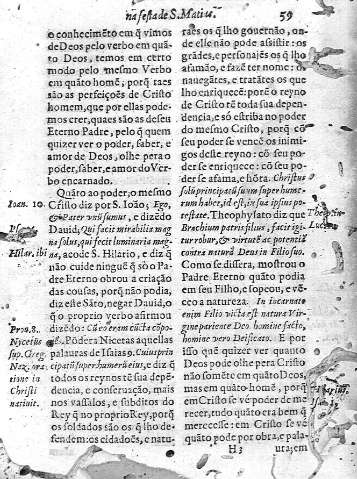 na festa de S. Mativ.
59
o conhecimẽto em q̃ vimos
de Deos pelo verbo em quã
to Deos, temos em certo
modo pelo mesmo Verbo
em quãto homẽ, porq̃ taes
são as perfeições de Cristo
homem, que por ellas pode
mos crer, quaes são as de seu
Eterno Padre, pelo q̃ quem
quizer ver o poder, saber, e
amor de Deos, olhe pera o
poder, saber, e amor do Ver
bo encarnado.
Quãto ao poder, o mesmo
Cristo diz por S. Ioão; Ego,
& Pater vnũ sumus, e dizẽdo
Dauid; Qui facit mirabilia mag
na solus, qui fecit luminaria mag
na, acode S. Hilario, e diz q̃
não cuide ninguẽ q̃ sò o Pa
dre Eterno obrou a criação
das cousas, porq̃ não podia,
diz este Sãto, negar Dauid, o
q̃ o proprio verbo afirmou
dizẽdo: Cũ eo eram cũcta cõpo
nẽs. Põdera Nicetas aquellas
palauras de Isaias 9. Cuius prin
cipatũ super humerũ eius, e diz q̃
todos os reynos tẽ sua depẽ
dencia, e conseruação, mais
nos vassalos, e subditos do
Rey q̃ no proprio Rey, porq̃
os soldados são os q̃ lho de
fendem: os cidadoẽs, e natu-
Ioan. 10.
Hilar. ibi
Prou. 8.
Nycetus
sup. Greg.
Naz. ora
tione in
Christi
natiuit.
raes os q̃ lho gouernão, on
de elle não pode assistir: os
grãdes, e personajẽs os q̃ lho
afamão, e fazẽ ter nome: os
nauegãtes, e tratãtes os que
lho enriquecẽ: porẽ o reyno
de Cristo tẽ toda sua depen
dencia, e só estriba no poder
do mesmo Cristo, porq̃ cõ
seu poder se vencẽ os inimi
gos deste reyno: cõ seu po
der se enriquece: cõ seu po
der se afama, e hõra. Christus
solũ principatũ suum super hume
rum haber, id est, in sua ipsius po
testate. Theophylato diz que
Brachium patris filius, facit igi
tur robur, & virtutẽ ac potentiã
contra naturã Deus in Filio suo.
Como se dissera, mostrou o
Padre Eterno quãto podia
em seu Filho, e sopeou, e vẽ
ceo a natureza. In incarnato
enim Filio victa est natura Vir
gine pariente Deo homine facto,
homine vero Deificato. E por
isso quẽ quizer ver quanto
Deos pode olhe pera Cristo
não sómẽte em quãto Deos,
mas em quãto homẽ, porq̃
em Cristo se vé poder de me
recer, tudo quãto era bem q̃
merecesse: em Cristo se vẽ
quãto pode por obra, e pala-
Lucæ
H 3
ura; em